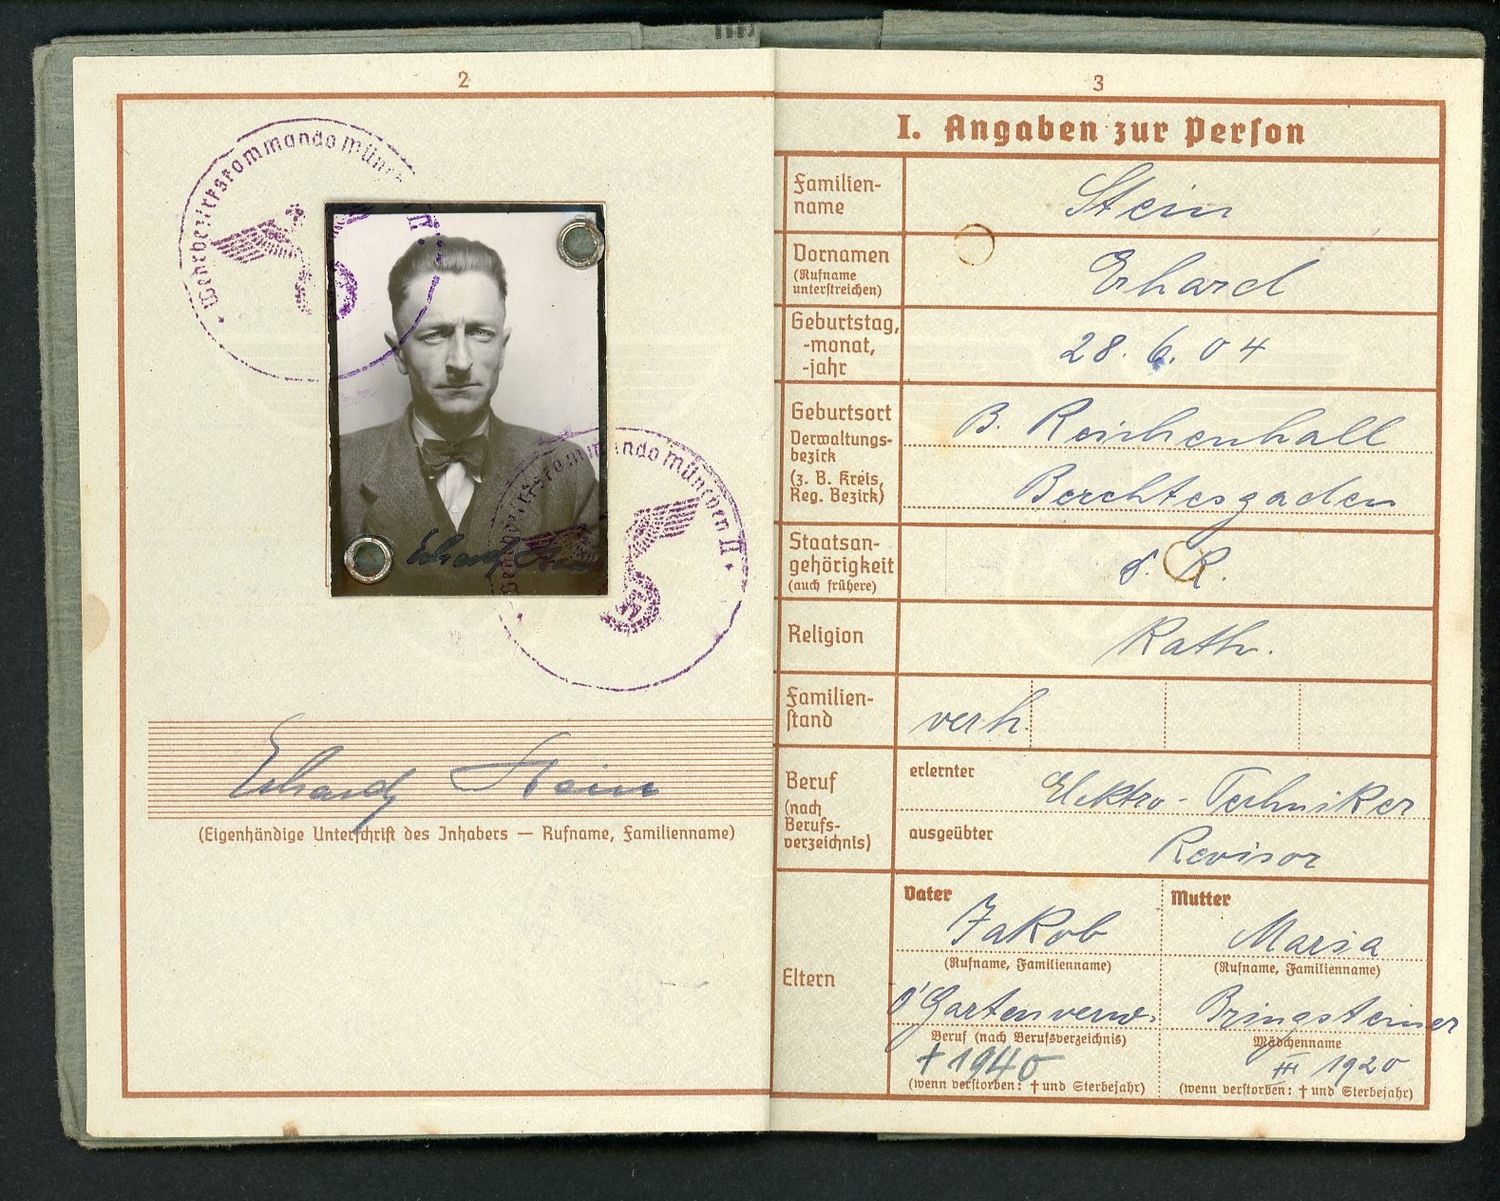 2
Wehrbezirkskommando Münc
II
Erhard Stein
Wehrbezirkskommando München II
Erhard Stein
(Eigenhändige Unterschrift des Inhabers — Rufname, Familienname)
3
I. Angaben zur Person
Familien-
name
Stein
Vornamen
(Rufname
unterstreichen)
Erhard
Geburtstag,
-monat,
-jahr
28. 6. 04
Geburtsort
Verwaltungs-
bezirk
(z. B. Kreis,
Reg. Bezirk)
B. Reichenhall
Berchtesgaden
Staatsan-
gehörigkeit
(auch frühere)
d. R.
Religion
Kath.
Familien-
stand
verh.
Beruf
(nach
Berufs-
verzeichnis)
erlernter
Elektro-Techniker
ausgeübter
Revisor
Eltern
Vater
Jakob
(Rufname, Familienname)
O'Gartenverw.
Beruf (nach Berufsverzeichnis)
† 1940
(wenn verstorben: † und Sterbejahr)
Mutter
Maria
(Rufname, Familienname)
Bringsteiner
Mädchenname
1920
(wenn verstorben: † und Sterbejahr)